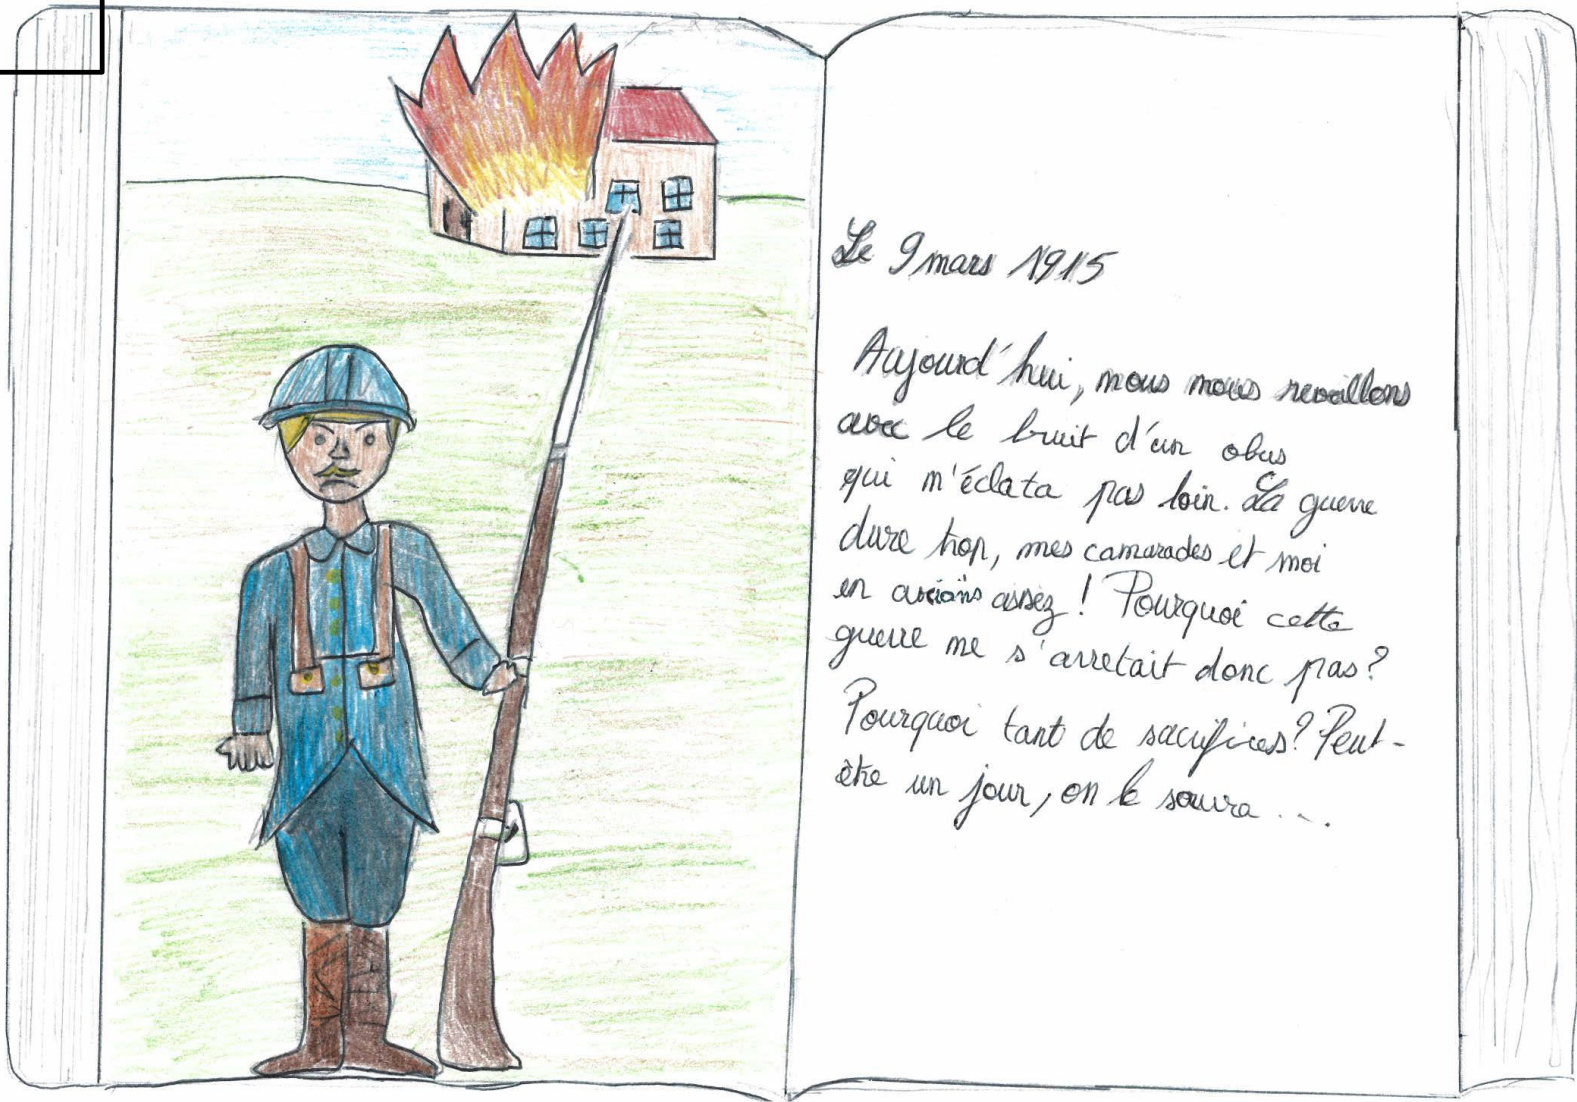 Le 9 mars 1915
Aujourd'hui, nous nous revaillons
avec le bruit d'un obus
qui n'éclata pas loin. La guerre
dure trop, mes camarades et moi
en avions assez ! Pourquoi cette
guerre ne s'arretait donc pas ?
Pourquoi tant de sacrifices ? Peut-
être un jour, on le saura ...